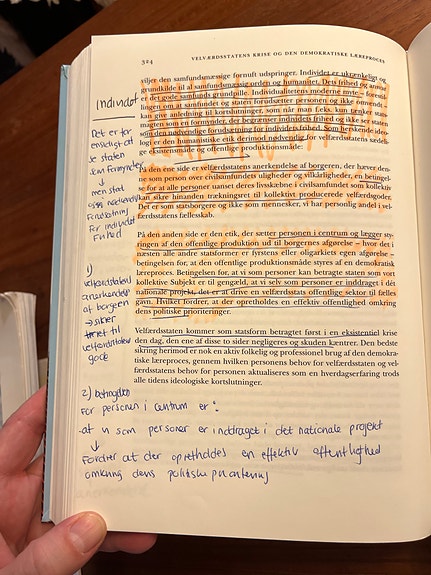 324
VELFÆRDSSTATENS KRISE OG DEN DEMOKRATISKE LÆREPROCES
viljer den samfundsmæssige fornuft udspringer. Individet er ukrænkeligt og
grundkilde til al samfundsmæssig orden og humanitet. Dets frihed og
er det gode samfunds grundpille. Individualitetens moderne myte – forestil-
lingen om at samfundet og staten forudsætter personen og ikke omvendt –
kan give anledning til kortslutninger, som når man f.eks. kun tænker stats-
magten som en formynder, der begrænser individets frihed og ikke ser staten
som den nødvendige forudsætning for individets frihed. Som herskende ideo-
logi er den humanistiske etik derimod nødvendig for velfærdsstatens sædeli-
ge eksistensmåde og offentlige produktionsmåde:
På den ene side er velfærdsstatens anerkendelse af borgeren, der hæver den-
ne som person over civilsamfundets uligheder og vilkårligheder, en betingel-
se for at alle personer uanset deres livsskæbne i civilsamfundet som kollektiv
kan sikre hinanden trækningsret til kollektivt producerede velfærdsgoder.
Det er som statsborgere og ikke som mennesker, vi har personlig andel i vel-
færdsstatens fællesskab.
På den anden side er den etik, der sætter personen i centrum og lægger sty-
ringen af den offentlige produktion ud til borgernes afgørelse – hvor det i
næsten alle andre statsformer er fyrstens eller oligarkiets egen afgørelse –
betingelsen for, at den offentlige produktionsmåde styres af en demokratisk
læreproces. Betingelsen for, at vi som personer kan betragte staten som vort
kollektive Subjekt er til gengæld, at vi selv som personer er inddraget i det
nationale projekt, det er at drive en velfærdsstats offentlige sektor til fælles
gavn. Hvilket fordrer, at der opretholdes en effektiv offentlighed omkring
dens politiske prioriteringer.
Velfærdsstaten kommer som statsform betragtet først i en eksistentiel krise
den dag, den ene af disse to sider negligeres og skuden kæntrer. Den bedste
sikring herimod er nok en aktiv folkelig og professionel brug af den demokra-
tiske læreproces, gennem hvilken personens behov for velfærdsstaten og vel-
færdsstatens behov for personen aktualiseres som en hverdagserfaring trods
alle tidens ideologiske kortslutninger.
Individet
Det er for
ensidigt at
se staten
som formynder
↓
men stat
også nødvendig
forudsætning
for individets
frihed
1)
velfærdsstatens
anerkendelse
af borgeren
→ sikrer
til
velfærdsstatens
gode
2) betingelsen
For personen i centrum er:
- at vi som personer er inddraget i det nationale projekt
↓
Fordrer at der opretholdes en effektiv offentlighed
omkring dens politiske prioritering